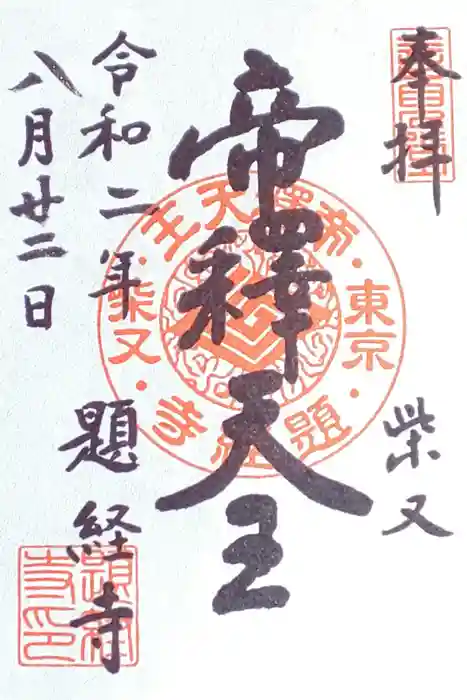 奉拝
柴又
帝釋天王
令和二年
八月廿二日
題経寺
東京
柴又
帝釋天王
題經寺